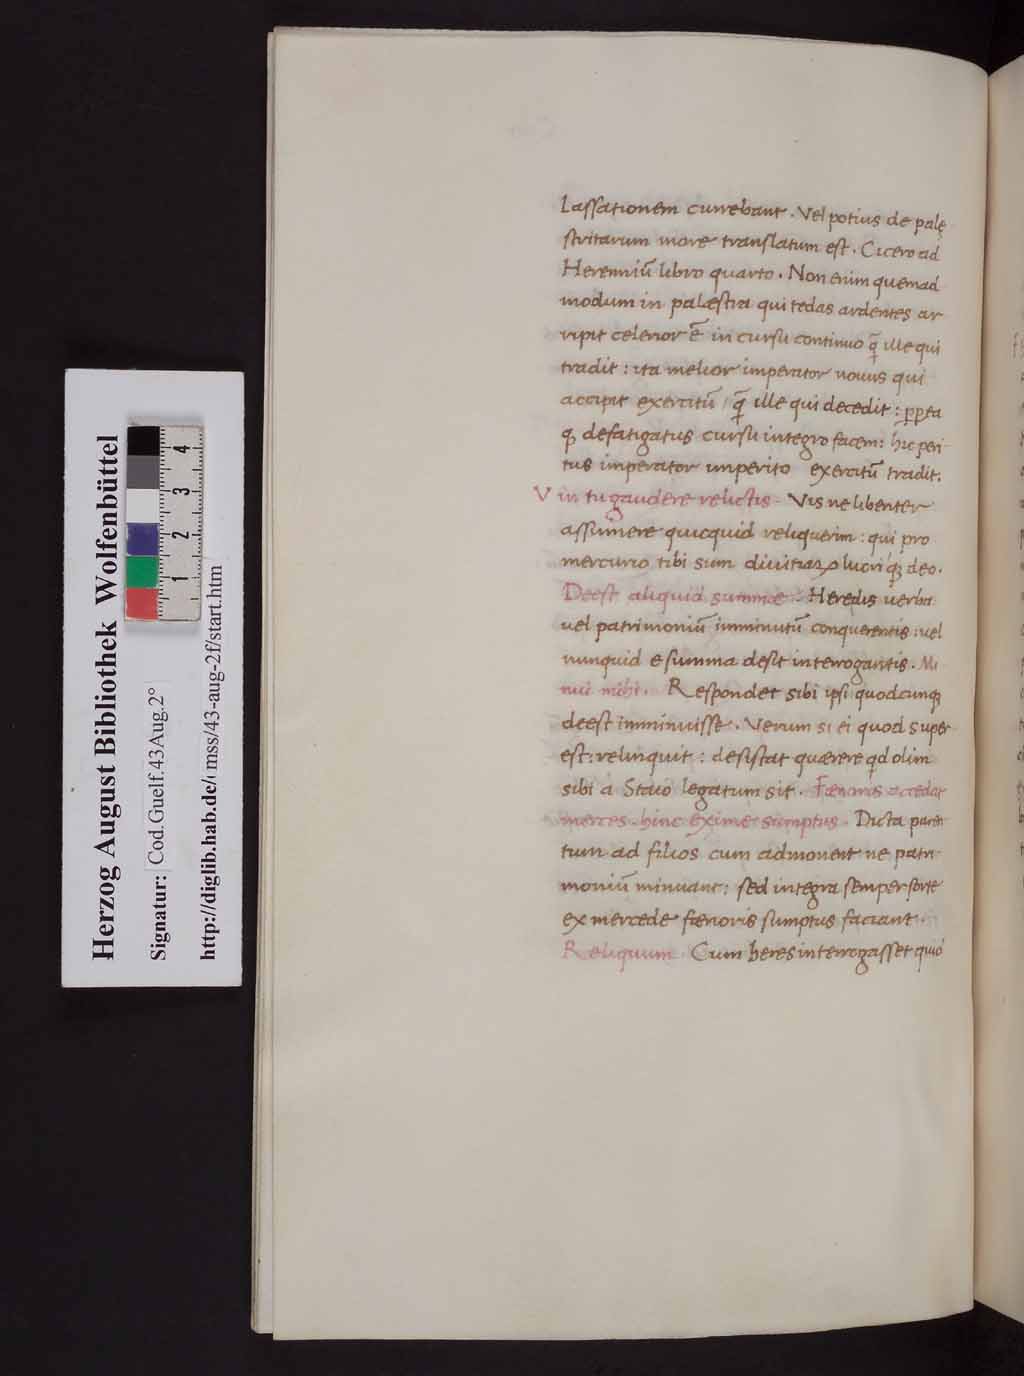 Lassationem currebant. Vel potius de palę
stritarum more translatum est. Cicero ad
Herenniū libro quarto. Non enim quemad
modum in palæstra qui tedas ardentes ar
ripit celerior ē in cursu continuo q̄ ille qui
tradit: ita melior imperator nouus qui
accipit exercitū / q̄ ille qui decedit: ꝓpta
qꝫ defatigatus cursu integro facem: hic peri
tus imperator imperito exercitū tradit.
Vin tu gaudere relictis. Vis ne libenter
assumere quicquid reliquerim: qui pro
mercurio tibi sum diuitiaꝝ lucriqꝫ deo.
Deest aliquid summæ. Heredis uerba
uel patrimoniū imminutū conquerentis: uel
nunquid e summa desit interrogantis. Mi
nui mihi. Respondet sibi ipsi quodcunqꝫ
deest imminuisse. Verum si ei quod super
est: relinquit: desistat quærere qd olim
sibi a Staio legatum sit. Fænoris accedat
merces. hinc exime sumptus. Dicta paren
tum ad filios cum admonent ne patri
moniū minuant: sed integra semper sorte
ex mercede fænoris sumptus faciant.
Reliquum. Cum heres interrogasset quid
Herzog August Bibliothek Wolfenbüttel
Signatur: Cod.Guelf.43Aug.2°
http://diglib.hab.de/mss/43-aug-2f/start.htm
1 2 3 4